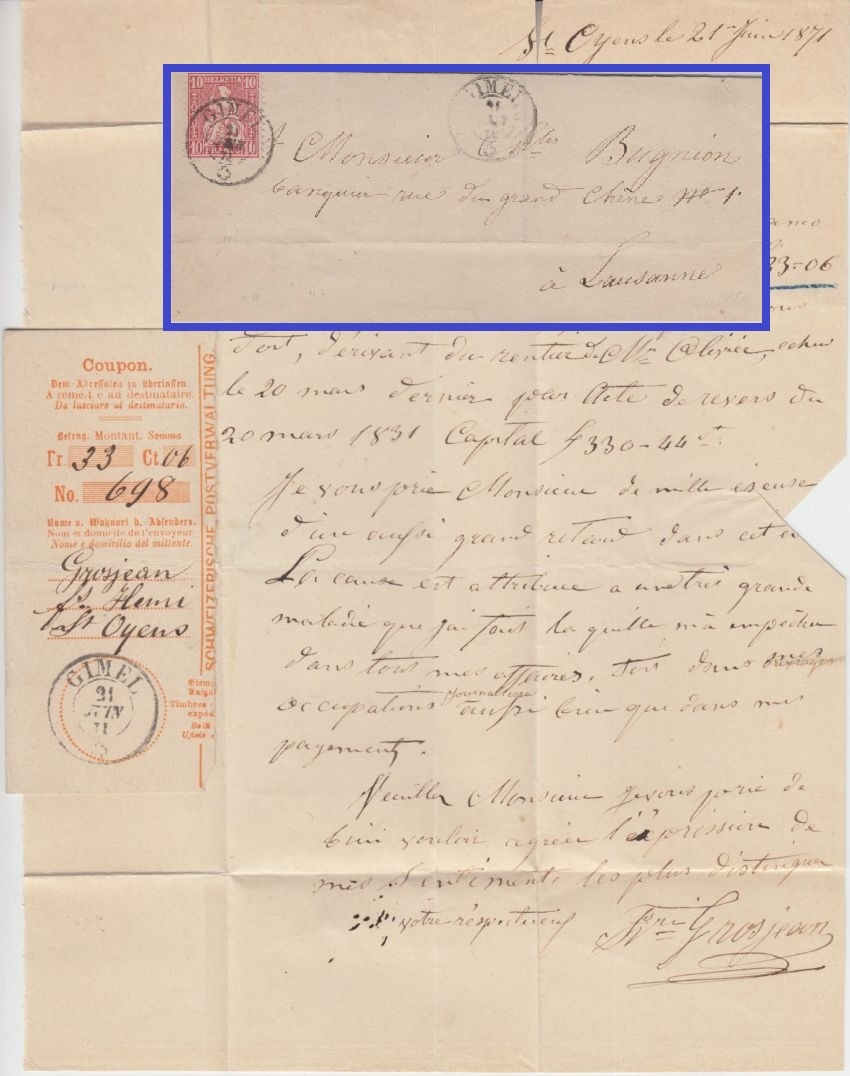 St Oyens le 21 Juin 1871
10 HELVETIA 10
10 10
GIMEL
21
GIMEL
21
Monsieur Bugnion
banquier rue du grand Chêne No 1.
à Lausanne
33=06
fort, dérivant du rentier de Mr Olivier, echu
le 20 mars dernier par Acte de revers du
20 mars 1831 Capital 330-44
Je vous prie Monsieur de mille escuse
d'un aussi grand retard dans cet
La cause est attribuee a une très grande
maladie que jai fait la quelle m'a empêchee
dans tout mes affaires, soit dans
occupations journaliere aussi bien que dans mes
payement.
Veuillez Monsieur je vous prie de
bien vouloir agréer l'expression de
mes Sentiments les plus distinguer
votre réspectueux Hri Grosjean
Coupon.
Dem Adressaten zu überlassen
A remettre au destinataire.
Da lasciare al destinatario.
Betrag. Montant. Somma
Fr. 33 Ct. 06
No. 698
Name u. Wohnort d. Absenders.
Nom et domicile de l'envoyeur
Nome e domicilio del mittente.
Grosjean
fs. Henri
St Oyens
GIMEL
21
JUIN
71
SCHWEIZERISCHE POSTVERWALTUNG.
Timbres